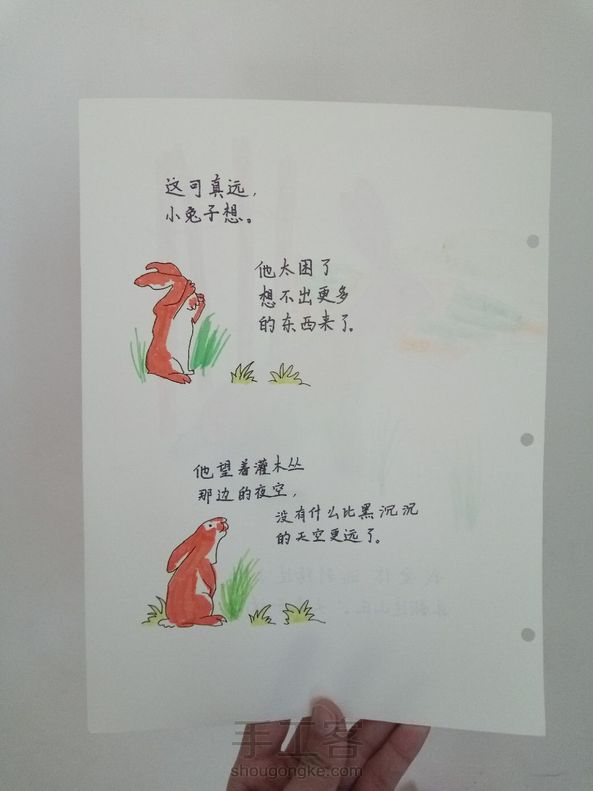 这可真远，
小兔子想。
他太困了
想不出更多
的东西来了。
他望着灌木丛
那边的夜空，
没有什么比黑沉沉
的天空更远了。
手工客
shougongke.com